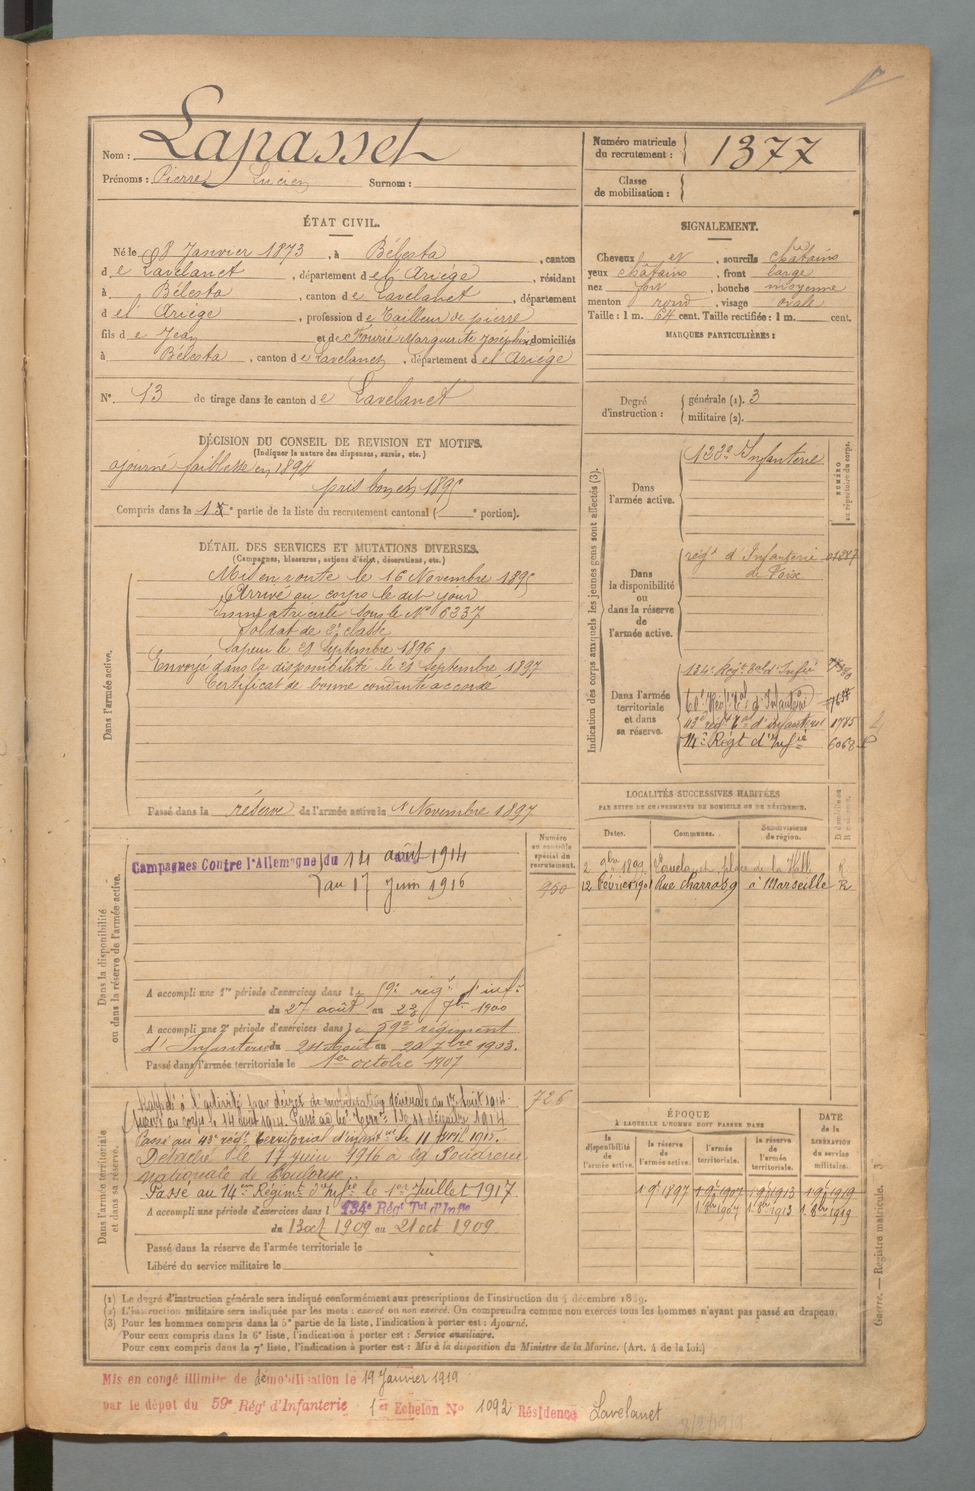 Nom : Lapasset
Prénoms : Pierre Lucien Surnom :
Numéro matricule du recrutement : 1377
Classe de mobilisation :
ÉTAT CIVIL.
Né le 8 Janvier 1873, à Bélesta, canton
de Lavelanet, département de l'Ariège, résidant
à Bélesta, canton de Lavelanet, département
de l'Ariège, profession de tailleur de pierre
fils de Jean et de Fourié Marguerite Joséphine domiciliés
à Bélesta, canton de Lavelanet, département de l'Ariège
N° 13 de tirage dans le canton de Lavelanet
SIGNALEMENT.
Cheveux et, sourcils châtains
yeux châtains, front large
nez fort, bouche moyenne
menton rond, visage ovale
Taille : 1 m. 64 cent. Taille rectifiée : 1 m. cent.
MARQUES PARTICULIÈRES :
Degré d'instruction : générale (1). 3
militaire (2).
DÉCISION DU CONSEIL DE REVISION ET MOTIFS.
(Indiquer la nature des dispenses, sursis, etc.)
ajourné faiblesse en 1894
pris bon en 1895
Compris dans la 1re partie de la liste du recrutement cantonal ( e portion).
DÉTAIL DES SERVICES ET MUTATIONS DIVERSES.
(Campagnes, blessures, actions d'éclat, décorations, etc.)
Dans l'armée active.
Mis en route le 16 Novembre 1895
Arrivé au corps le dit jour
immatriculé sous le No 6337
Soldat de 2e classe
Sapeur le 21 Septembre 1896
Envoyé dans la disponibilité le 21 Septembre 1897
Certificat de bonne conduite accordé
Passé dans la réserve de l'armée active le 1er Novembre 1897
Indication des corps auxquels les jeunes gens sont affectés (3).
NUMÉRO au répertoire du corps.
Dans l'armée active.
133e Infanterie
Dans la disponibilité ou dans la réserve de l'armée active.
régt d'Infanterie 01287
de Foix
Dans l'armée territoriale et dans sa réserve.
134e Régt tal d'Infie
60e Régt tal d'Infanterie
43e régt tal d'infanterie 1785
14e Régt d'Infie 6068
LOCALITÉS SUCCESSIVES HABITÉES
PAR SUITE DE CHANGEMENTS DE DOMICILE OU DE RÉSIDENCE.
Dates. Communes. Subdivisions de région.
2 9bre 1899 Lavelanet, place de la Halle R
12 Février 1901 Rue Charras 9 à Marseille R
Dans la disponibilité ou dans la réserve de l'armée active.
Numéro au contrôle spécial du recrutement.
960
Campagnes Contre l'Allemagne du 14 août 1914
au 17 Juin 1916
A accompli une 1re période d'exercices dans le 59e régt d'infie
du 27 août au 23 7bre 1900
A accompli une 2e période d'exercices dans le 59e régiment
d'Infanterie du 24 Août au 20 7bre 1903.
Passé dans l'armée territoriale le 1er octobre 1907
Dans l'armée territoriale et dans sa réserve.
726
Rappelé à l'activité par décret de mobilisation générale du 1er Août 1914.
Arrivé au corps le 14 août 1914. Passé au 60e terral le 11 décembre 1914.
Passé au 43e régt territorial d'infanterie le 11 Avril 1915.
Détaché le 17 juin 1916 à la Poudrerie
nationale de Toulouse
Passé au 14ème Régimt d'Infie le 1er Juillet 1917
A accompli une période d'exercices dans l 134e Régt Tal d'Infie
du 13 oct 1909 au 21 oct 1909.
Passé dans la réserve de l'armée territoriale le
Libéré du service militaire le
ÉPOQUE
À LAQUELLE L'HOMME DOIT PASSER DANS
DATE de la LIBÉRATION du service militaire.
la disponibilité de l'armée active. la réserve de l'armée active. l'armée territoriale. la réserve de l'armée territoriale.
1 9bre 1897 1 9bre 1907 1 9bre 1913 1 9bre 1919
1 8bre 1907 1 8bre 1913 1 8bre 1919
Guerre. — Registre matricule. 3
(1) Le degré d'instruction générale sera indiqué conformément aux prescriptions de l'instruction du 4 décembre 1889.
(2) L'instruction militaire sera indiquée par les mots : exercé ou non exercé. On comprendra comme non exercés tous les hommes n'ayant pas passé au drapeau.
(3) Pour les hommes compris dans la 5e partie de la liste, l'indication à porter est : Ajourné.
Pour ceux compris dans la 6e liste, l'indication à porter est : Service auxiliaire.
Pour ceux compris dans la 7e liste, l'indication à porter est : Mis à la disposition du Ministre de la Marine. (Art. 4 de la loi.)
Mis en congé illimité de démobilisation le 19 Janvier 1919
par le dépot du 59e Régt d'Infanterie 1er Echelon No 1092 Résidence Lavelanet